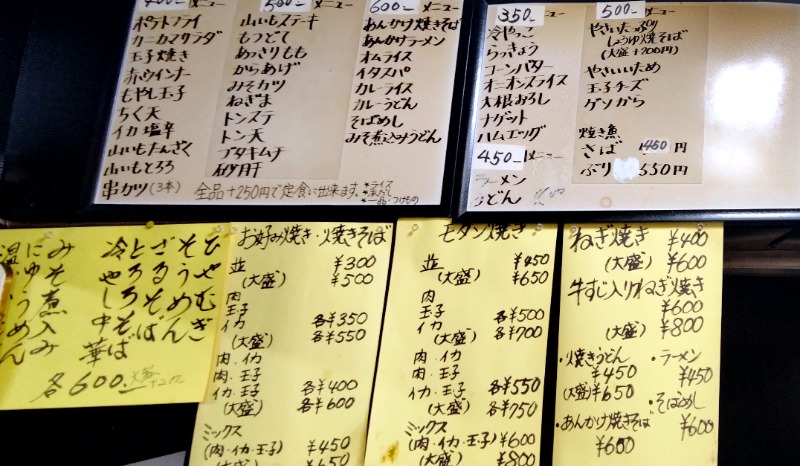 400- メニュー
ポテトフライ
カニカマサラダ
玉子焼き
赤ウインナー
もやし玉子
ちく天
イカ塩辛
山いもたんざく
山いもとろろ
串カツ(3本)
500- メニュー
山いもステーキ
もつどて
あっさりもも
からあげ
みそカツ
ねぎま
トンステ
トン天
ブタキムチ
砂ズリ
全品+250円で定食に出来ます。
・ライス
・みそだし
・一品・つけもの
600- メニュー
あんかけ焼きそば
あんかけラーメン
オムライス
イタスパ
カレーライス
カレーうどん
そばめし
みそ煮込みうどん
350- メニュー
冷やっこ
らっきょう
コーンバター
オニオンスライス
大根おろし
ナゲット
ハムエッグ
450- メニュー
ラーメン
うどん
500- メニュー
やさいたっぷり
しょうゆ焼そば
(大盛+200円)
やさいいため
玉子チーズ
ゲソから
焼き魚
さば 450円
ぶり 550円
冷やし中華
とろろそば
ざるそば
そうめん
ひやむぎ
にゅうめん
みそ煮込み
各600-
お好み焼き・焼きそば
並 ¥300
(大盛) ¥500
肉
玉子
イカ 各¥350
(大盛) 各¥550
肉・イカ
肉・玉子
イカ・玉子 各¥400
(大盛) 各¥600
ミックス
(肉・イカ・玉子) ¥450
(大盛) ¥650
モダン焼き
並 ¥450
(大盛) ¥650
肉
玉子 各¥500
イカ
(大盛) 各¥700
肉・イカ
肉・玉子
イカ・玉子 各¥550
(大盛) 各¥750
ミックス
(肉・イカ・玉子) ¥600
(大盛) ¥800
ねぎ焼き ¥400
(大盛) ¥600
牛すじ入りねぎ焼き
¥600
(大盛) ¥800
・焼きうどん
¥450
(大盛) ¥650
・あんかけ焼きそば
¥600
・ラーメン
¥450
・そばめし
¥600